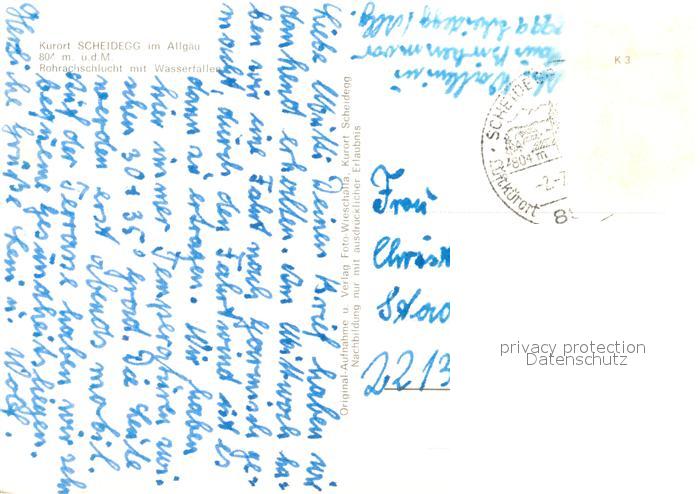 Kurort SCHEIDEGG im Allgäu
804 m. ü.d.M.
Rohrachschlucht mit Wasserfallen
Liebe Mutti! Deinen Brief haben wir
dankend erhalten. Am Mittwoch ha-
ben wir eine Fahrt nach Garmisch ge-
macht, durch den Fahrtwind ist es
dann zu ertragen. Wir haben
hier immer Temperaturen zwi-
schen 30 + 35° Grad. Die Leute
werden erst abends mobil.
Auf der Terrasse haben wir sehr
bequeme Gesundheitsliegen.
Herzliche Grüße
Original-Aufnahme u. Verlag Foto-Wieschalla, Kurort Scheidegg
Nachbildung nur mit ausdrücklicher Erlaubnis
Scheidegg / Allg
K 3
SCHEIDEGG
804 m
Luftkurort
-2.-7
89
Frau
2213
privacy protection
Datenschutz